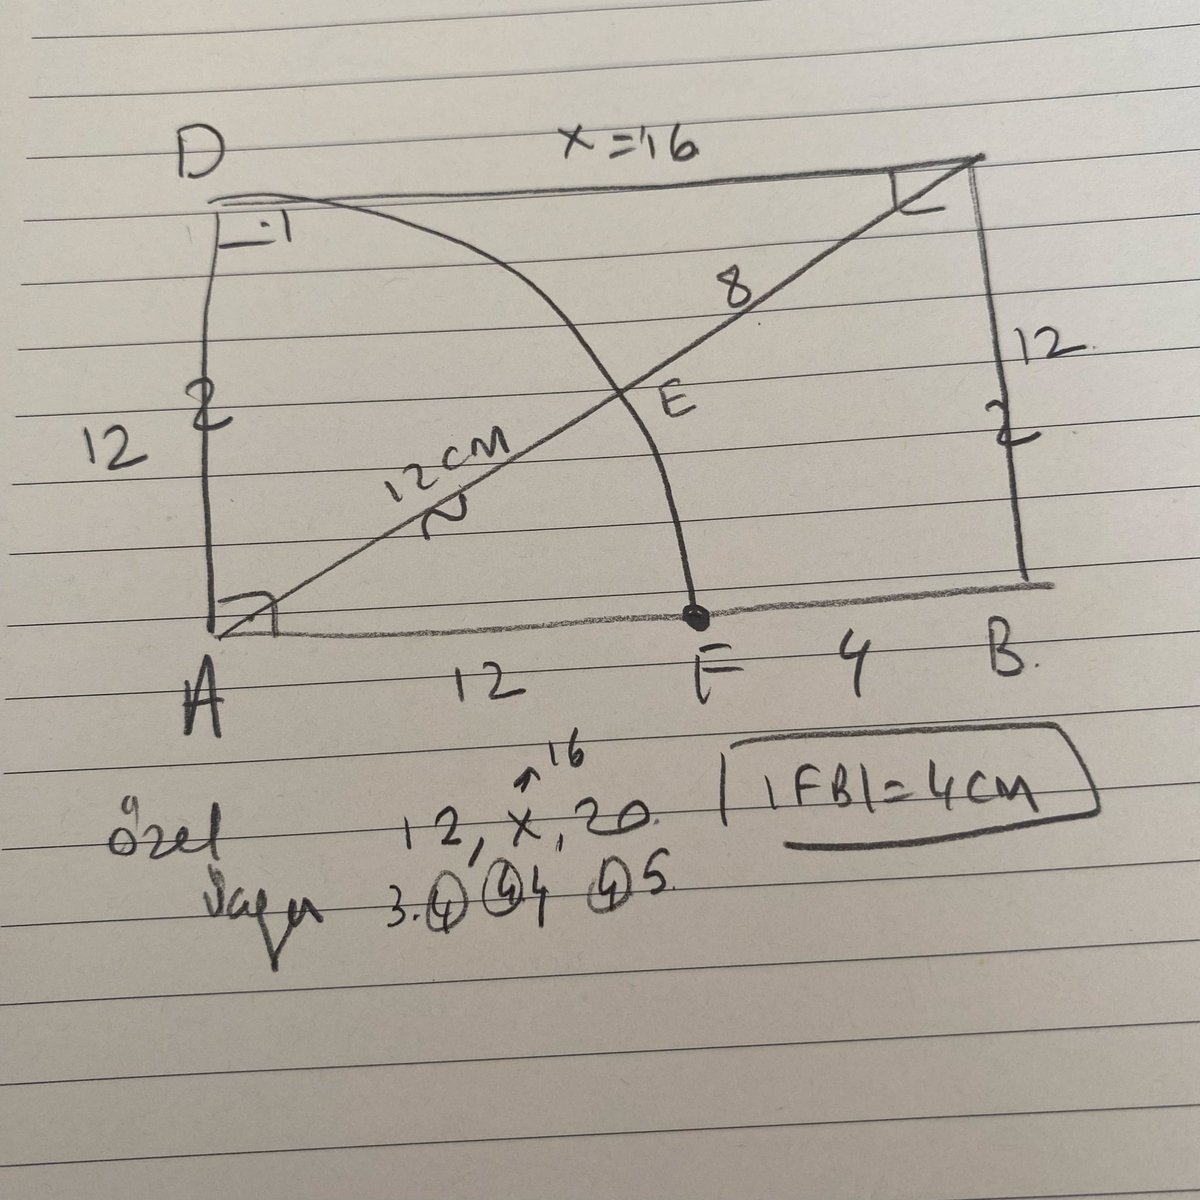 D
x = 16
8
12
E
12
12 CM
A
12
F
4
B.
16
Özel 12, x, 20. |FB| = 4 CM
3.4 4 4 4 5.